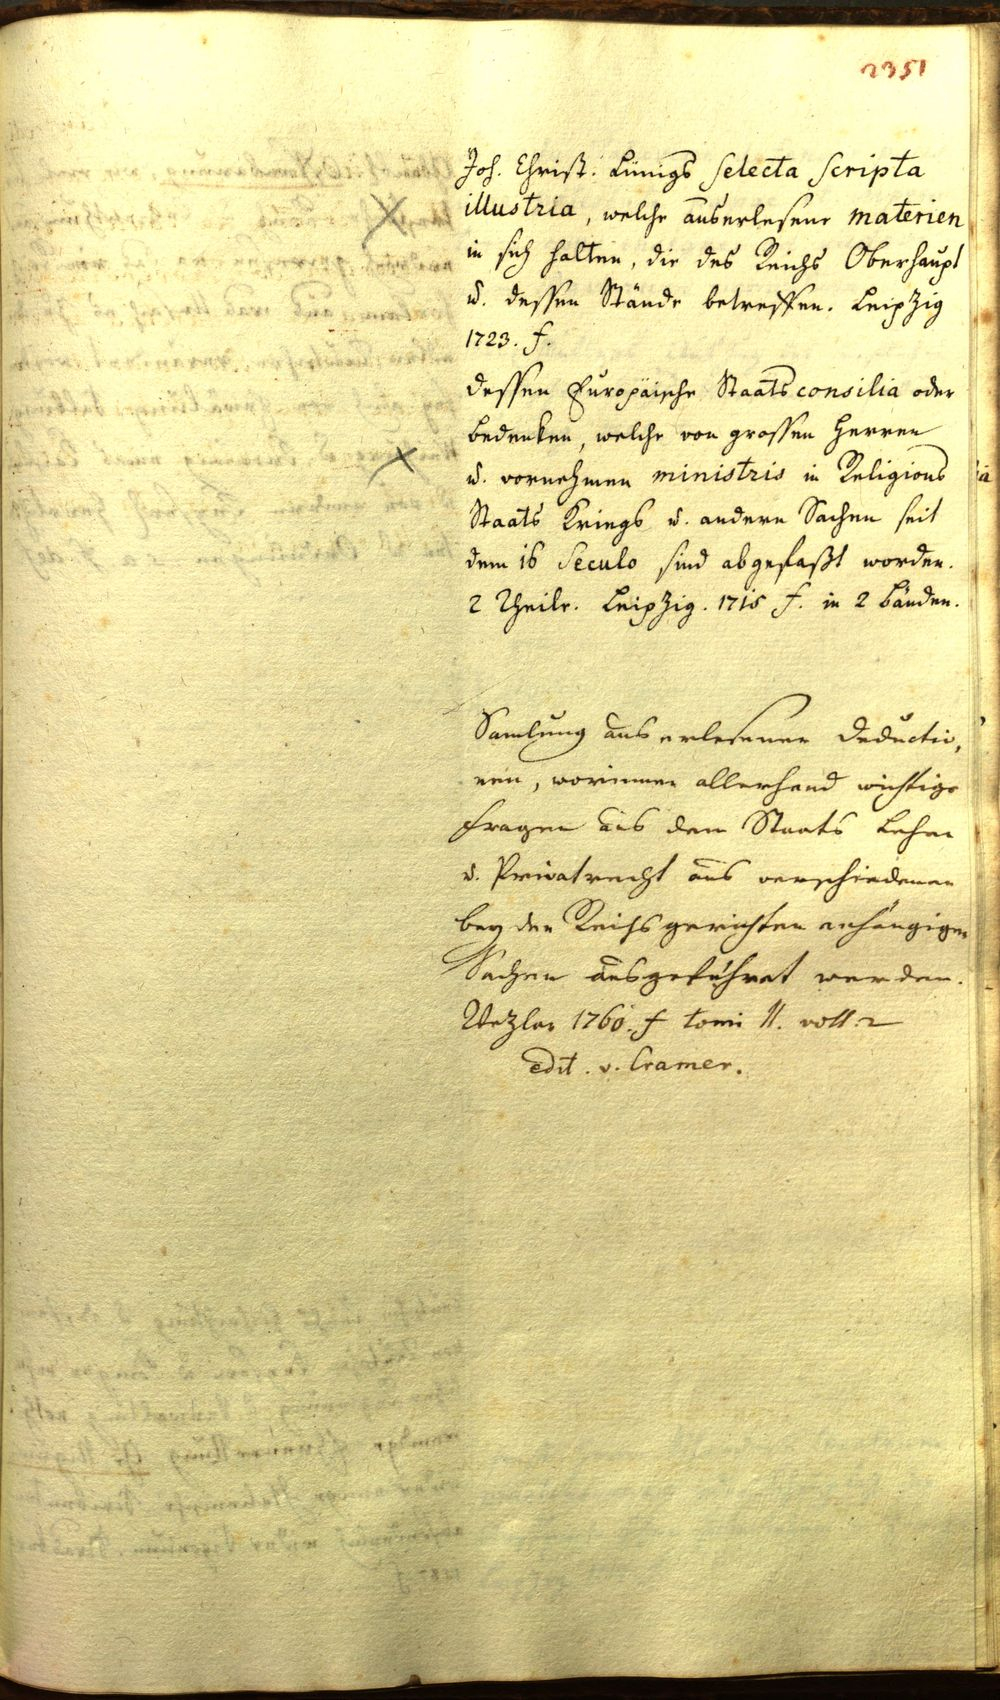 2351
Joh. Christ. Lünigs Selecta Scripta
illustria, welche auserlesene materien
in sich halten, die des Reichs Oberhaupt
u. dessen Stände betreffen. Leipzig
1723. f.
dessen Europäische Staats consilia oder
bedenken, welche von grossen Herren
u. vornehmen ministris in Religions
Staats Kriegs u. andern Sachen seit
dem 16 Seculo sind abgefaßt worden.
2 Theile. Leipzig. 1715 f. in 2 bänden.
Samlung aus erlesener Deductio,
nen, worinnen allerhand wichtige
Fragen aus dem Staats Lehn
u. Privatrecht aus verschiedenen
bey den Reichsgerichten anhängigen
Sachen ausgeführet werden.
Wezlar 1760. f tomi II. voll. 2
edit. v. Cramer.